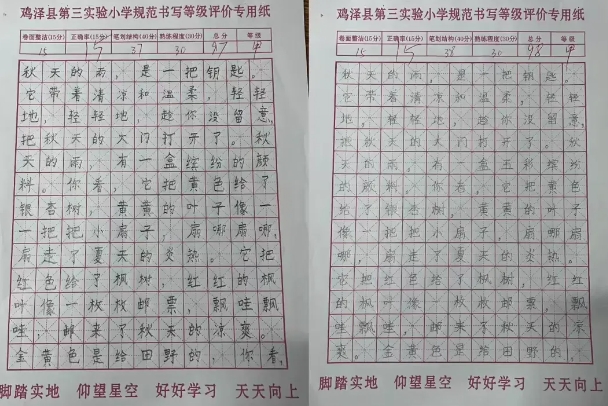 鸡泽县第三实验小学规范书写等级评价专用纸
卷面整洁(15分) 正确率(15分) 笔划结构(40分) 熟练程度(30分) 总分 等级
15 15 37 30 97 甲
秋天的雨，是一把钥匙。
它带着清凉和温柔，轻轻
地，轻轻地，趁你没留意，
把秋天的大门打开了。秋
天的雨，有一盒缤纷的颜
料。你看，它把黄色给了
银杏树，黄黄的叶子像一
一把把小扇子，扇哪扇哪，
扇走了夏天的炎热。它把
红色给了枫树，红红的枫
叶像一枚枚邮票，飘哇飘
哇，邮来了秋天的凉爽。
金黄色是给田野的，你看，
脚踏实地 仰望星空 好好学习 天天向上
鸡泽县第三实验小学规范书写等级评价专用纸
卷面整洁(15分) 正确率(15分) 笔划结构(40分) 熟练程度(30分) 总分 等级
15 15 38 30 98 甲
秋天的雨，是一把钥匙。
它带着清凉和温柔，轻轻
地。轻轻地，趁你没留意，
把秋天的大门打开了。秋
天的雨。有一盒五彩缤纷
的颜料，你看，它把黄色
给了银杏树，黄黄的叶子
像一把把小扇子，扇哪扇
哪，扇走了夏天的炎热。
它把红色给了枫树，红红
的枫叶像一枚枚邮票，飘
哇飘哇，邮来了秋天的凉
爽。金黄色是给田野的，
脚踏实地 仰望星空 好好学习 天天向上